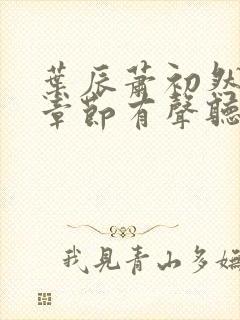 葉辰蕭初然
章節有聲聽
我見青山多嫵